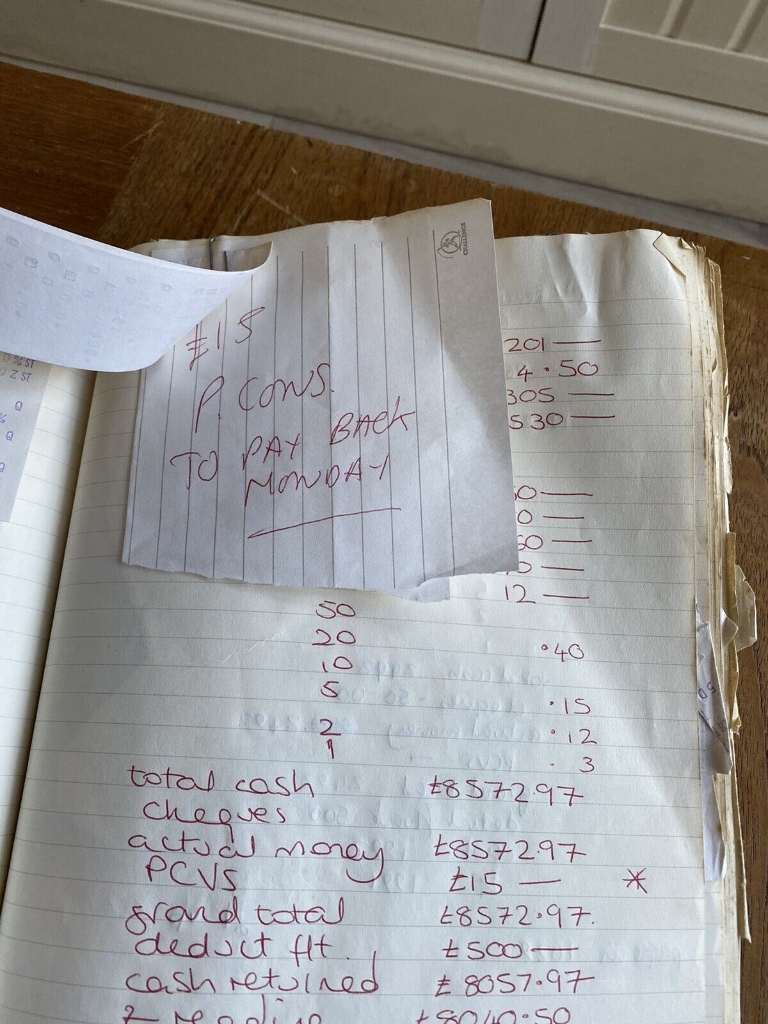 CHALLENGE
£15
P. CONS.
TO PAY BACK
MONDAY
201 —
4.50
305 —
530 —
12 —
50
20 .40
10
5 .15
2 .12
1 .3
total cash £8572.97
cheques
actual money £8572.97
PCVS £15 — *
grand total £8572.97.
deduct flt. £500 —
cash retuined £8057.97
Z reading £8040.50